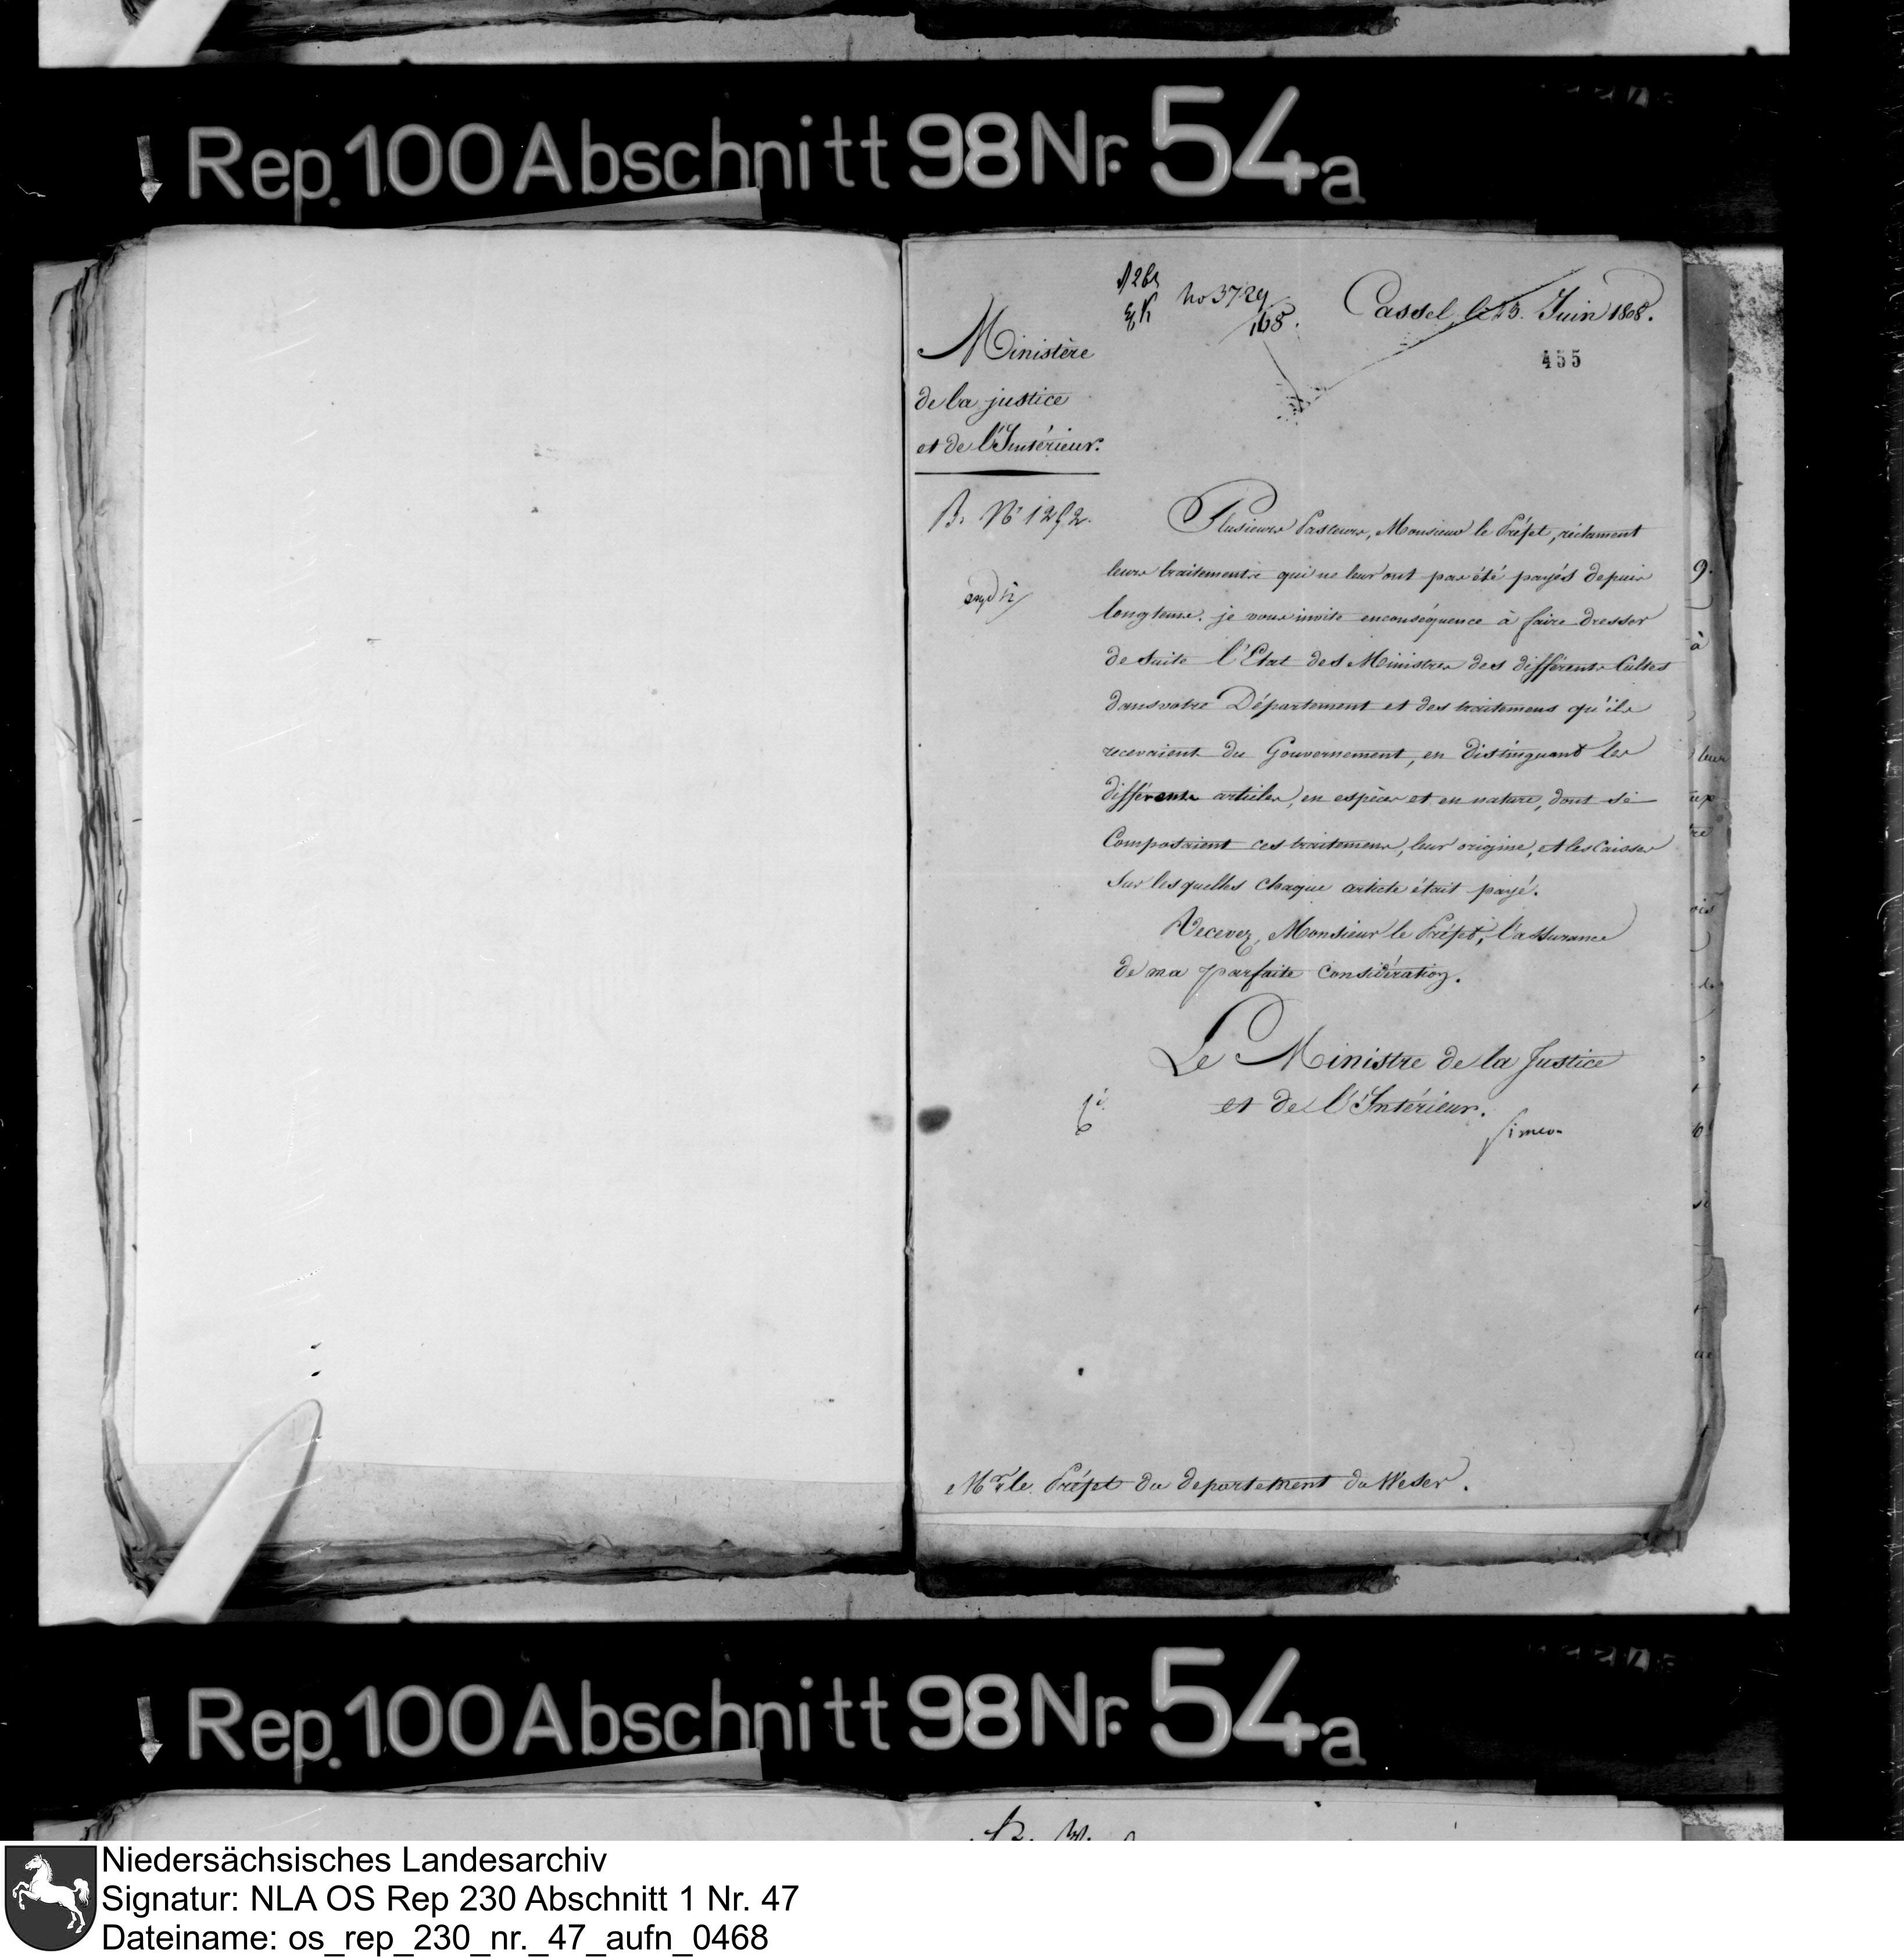 Rep. 100 Abschnitt 98 Nr. 54a
No 3729
168.
Cassel, le 13. Juin 1808.
455
Ministère
de la justice
et de l'Intérieur.
B. No 1292.
Plusieurs Pasteurs, Monsieur le Préfet, réclament
leurs traitements qui ne leur ont pas été payés depuis
longtems. je vous invite enconséquence à faire dresser
de suite l'Etat des Ministres des différents Cultes
dans votre Département et des traitemens qu'ils
recevaient du Gouvernement, en distinguant les
différents articles, en espèces et en nature, dont se
Composaient ces traitemens, leur origine, et les Caisses
Sur lesquelles chaque article était payé.
Recevez, Monsieur le Préfet, l'assurance
de ma parfaite considération.
Le Ministre de la Justice
et de l'Intérieur.
Simeon
Mr. le Préfet du departement du Weser.
Rep. 100 Abschnitt 98 Nr. 54a
Niedersächsisches Landesarchiv
Signatur: NLA OS Rep 230 Abschnitt 1 Nr. 47
Dateiname: os_rep_230_nr._47_aufn_0468